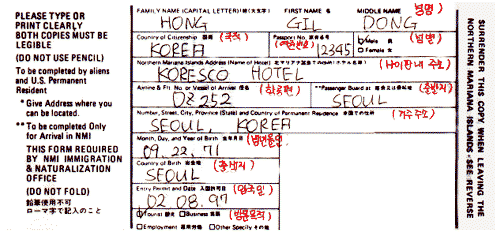 PLEASE TYPE OR
PRINT CLEARLY
BOTH COPIES MUST BE
LEGIBLE
(DO NOT USE PENCIL)
To be completed by aliens
and U.S. Permanent
Resident
* Give Address where you
can be located.
** To be completed Only
for Arrival in NMI
THIS FORM REQUIRED
BY NMI IMMIGRATION
& NATURALIZATION
OFFICE
(DO NOT FOLD)
鉛筆使用不可
ローマ字で記入のこと
FAMILY NAME (CAPITAL LETTER) FIRST NAME 名 MIDDLE NAME
HONG GIL DONG
Country of Citizenship 国籍 (국적) Passport No. 旅券番号
KOREA 12345 Male 男 Female 女
Northern Mariana Islands Address (Name of Hotel)
KORESCO HOTEL
Airline & Flt. No. or Vessel of Arrival (항공편) **Passenger Board at (출발지)
OZ 252 SEOUL
Number, Street, City, Province (State) and Country of Permanent Residence (거주 주소)
SEOUL, KOREA
Month, Day, and Year of Birth 生年月日
09. 22. 71
Country of Birth (출생지)
SEOUL
Entry Permit and Date 入国許可日 (입국일)
02 08. 97
Tourist 観光 Business 商用 (방문목적)
Employment Other Specify その他
SURRENDER THIS COPY WHEN LEAVING THE
NORTHERN MARIANA ISLANDS - SEE REVERSE